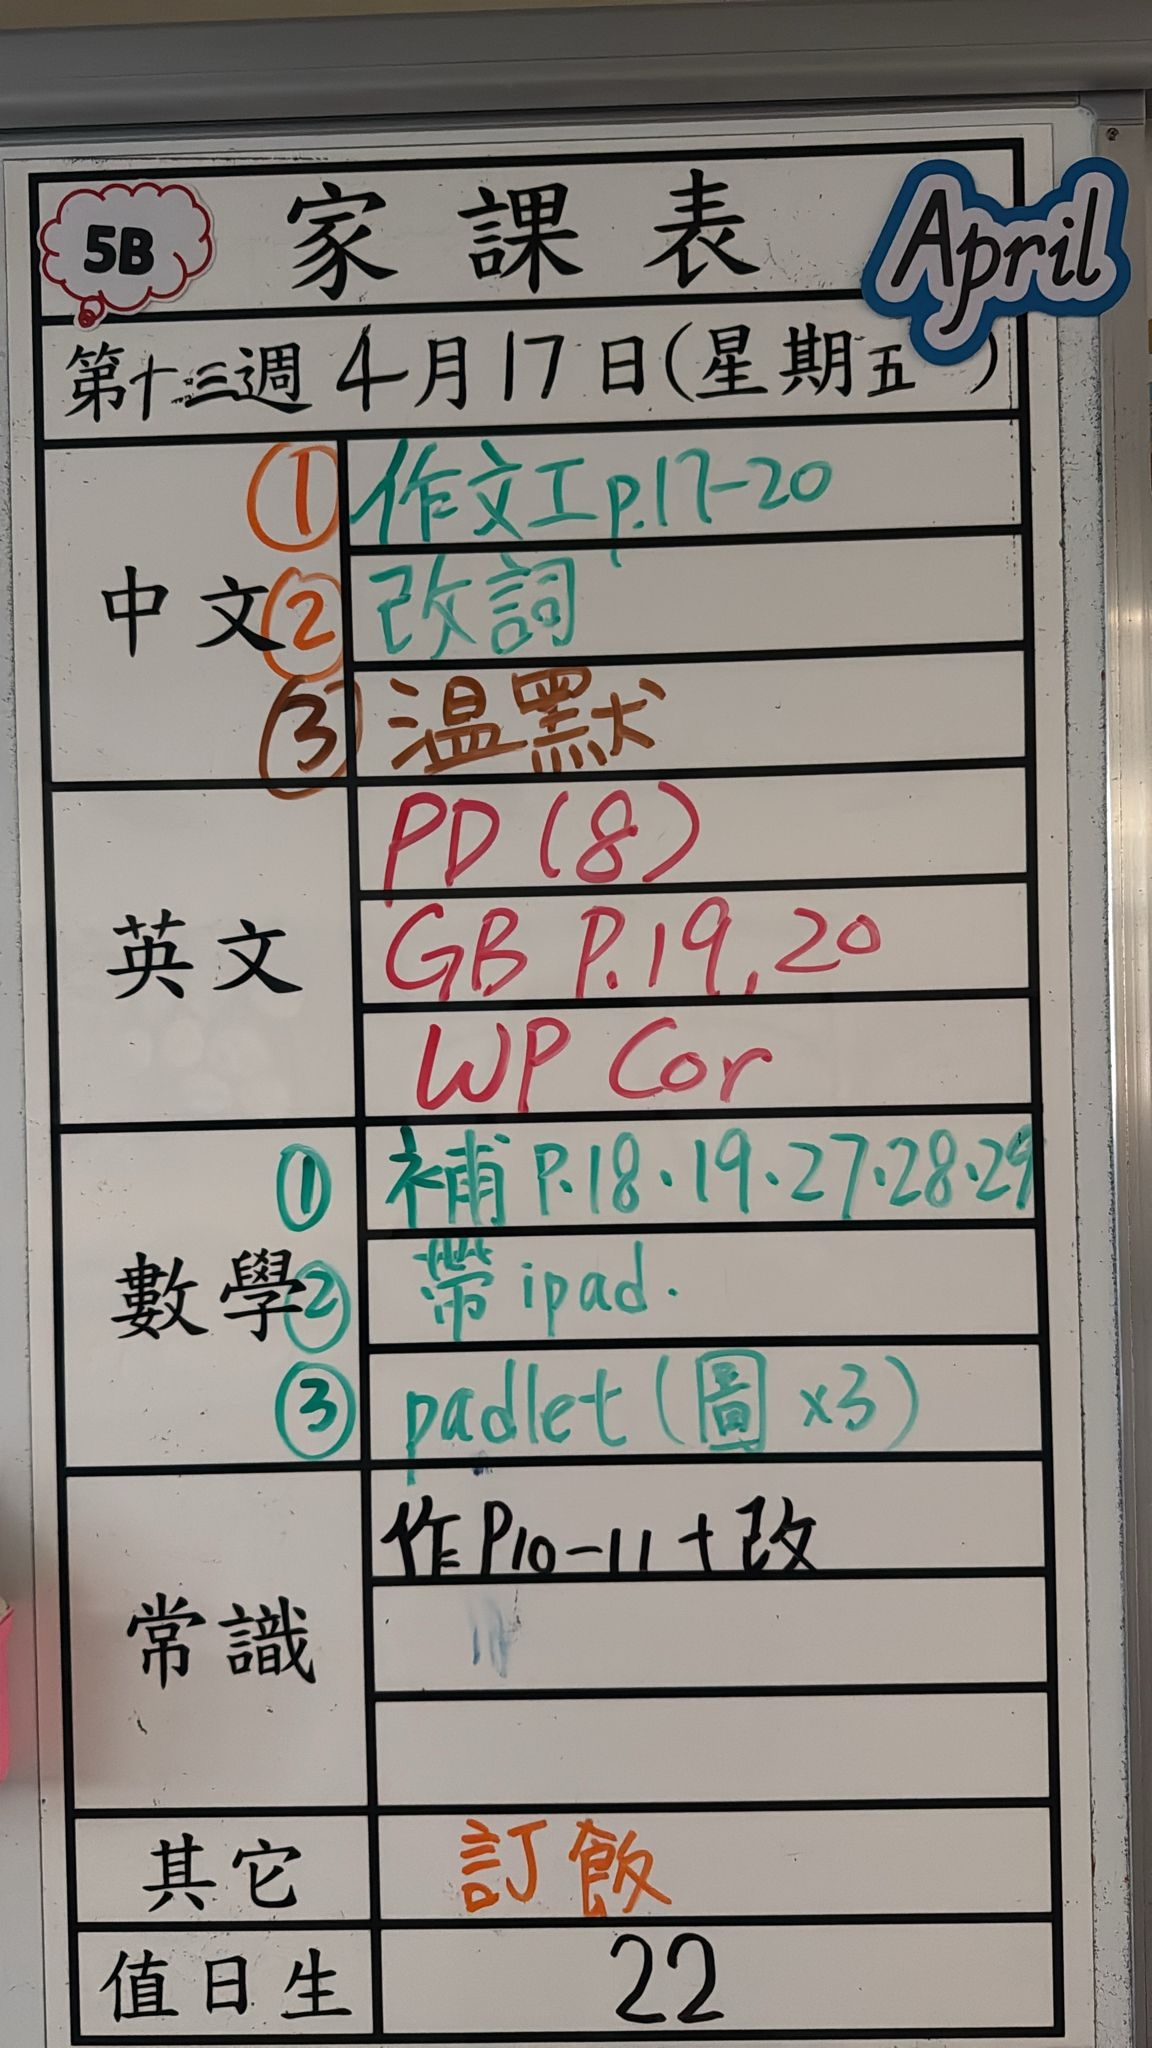 5B 家課表 April
第十三週 4月17日(星期五)
中文
① 作文工p.17-20
② 改詞
③ 溫默
英文
PD (8)
GB P.19, 20
WP Cor
數學
① 補 P.18.19.27.28.29
② 帶 ipad.
③ padlet (圖 x3)
常識
作 P10-11 + 改
其它
訂飯
值日生
22